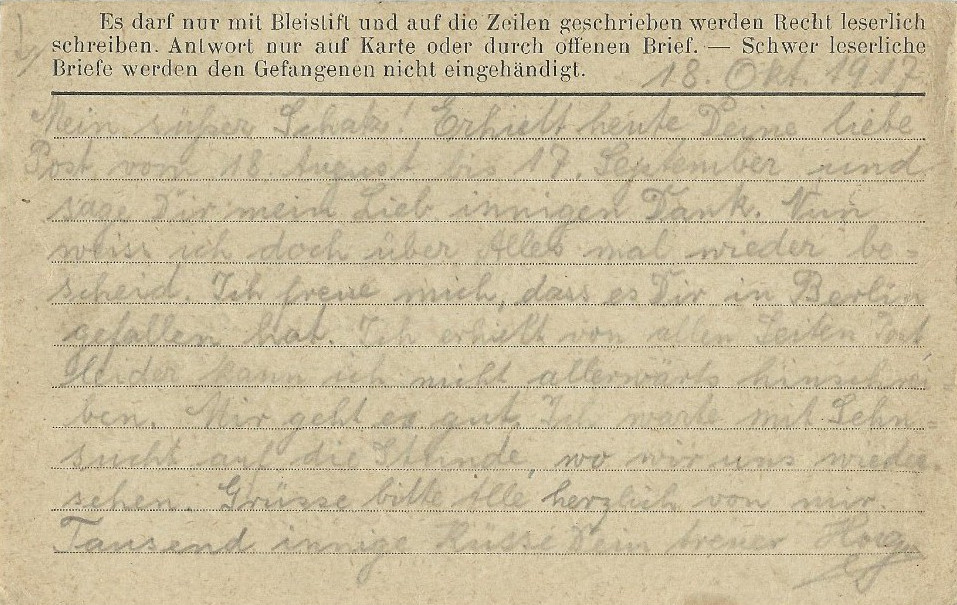 Es darf nur mit Bleistift und auf die Zeilen geschrieben werden Recht leserlich
schreiben. Antwort nur auf Karte oder durch offenen Brief. — Schwer leserliche
Briefe werden den Gefangenen nicht eingehändigt.
18. Okt. 1917
Mein süßer Schatz! Erhielt heute Deine liebe
Post vom 18 August bis 17. September und
sage Dir mein Lieb innigen Dank. Nun
weiss ich doch über Alles mal wieder be-
scheid. Ich freue mich, dass es Dir in Berlin
gefallen hat. Ich erhielt von allen Seiten Post
leider kann ich nicht allerwärts hinschrei-
ben. Mir geht es gut. Ich warte mit Sehn-
sucht auf die Stunde, wo wir uns wieder
sehen. Grüsse bitte Alle herzlich von mir.
Tausend innige Küsse Dein treuer